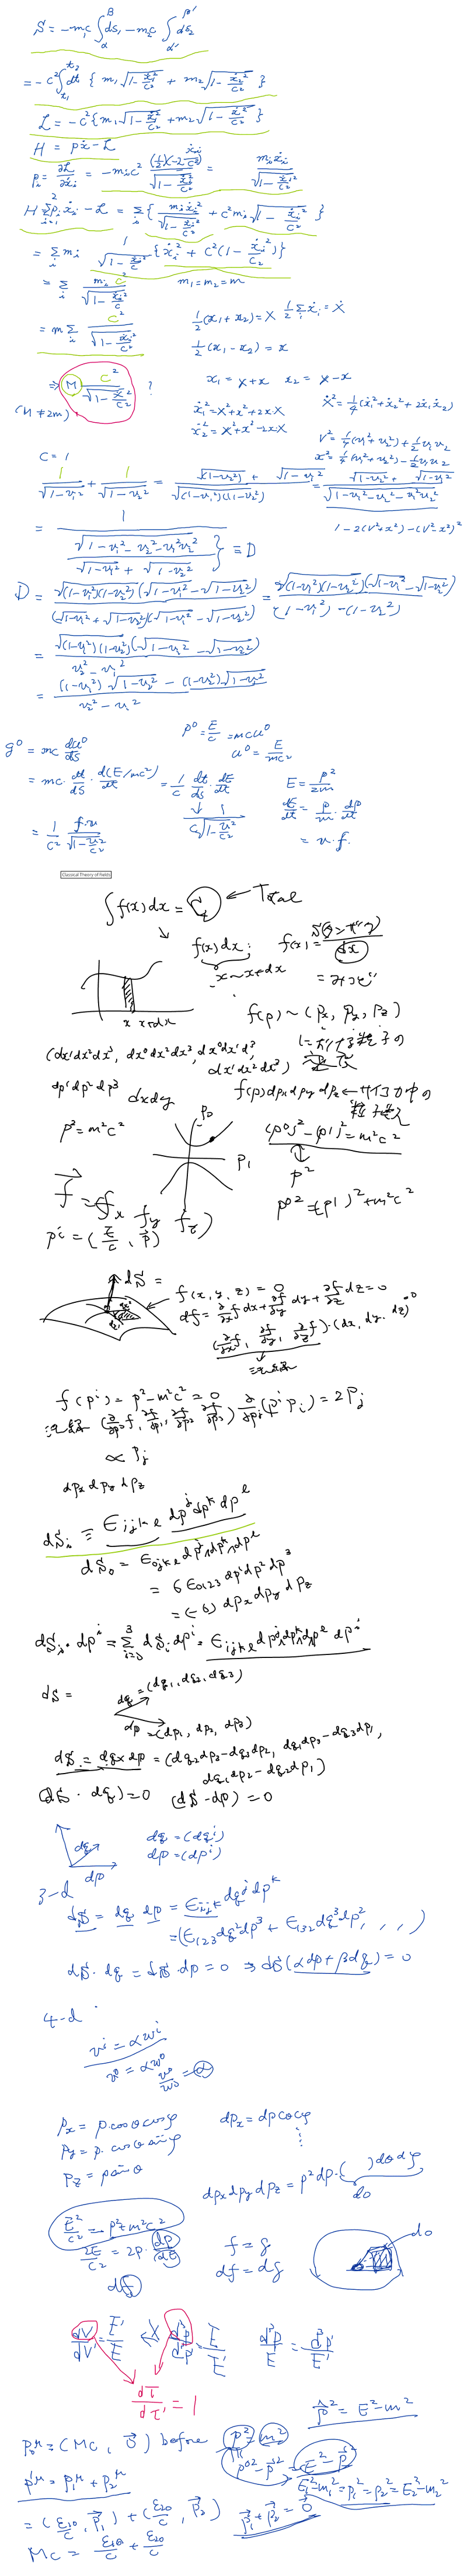 S = -m₁c ∫_α^β ds₁ - m₂c ∫_α'^β' ds₂
= -c² ∫_{t₁}^{t₂} dt { m₁ √(1-ẋ₁²/c²) + m₂ √(1-ẋ₂²/c²) }
L = -c² { m₁ √(1-ẋ₁²/c²) + m₂ √(1-ẋ₂²/c²) }
H = pẋ - L
p_i = ∂L/∂ẋ_i = -m_i c² (1/2)(-2 ẋ_i/c²)/√(1-ẋ_i²/c²) = m_i ẋ_i/√(1-ẋ_i²/c²)
H = Σ_{i=1}^{2} p_i ẋ_i - L = Σ_i { m_i ẋ_i²/√(1-ẋ_i²/c²) + c² m_i √(1-ẋ_i²/c²) }
= Σ_i m_i 1/√(1-ẋ_i²/c²) { ẋ_i² + c²(1-ẋ_i²/c²) }
= Σ_i m_i c²/√(1-ẋ_i²/c²) m₁ = m₂ = m
= m Σ_i c²/√(1-ẋ_i²/c²) 1/2 (x₁+x₂) = X 1/2 Σ ẋ_i = Ẋ
1/2 (x₁-x₂) = x
⇒ M c²/√(1-Ẋ²/c²) ? x₁ = X+x x₂ = X-x
(M ≠ 2m) ẋ₁² = Ẋ²+ẋ²+2ẋẊ Ẋ² = 1/4 (ẋ₁²+ẋ₂²+2ẋ₁ẋ₂)
ẋ₂² = Ẋ²+ẋ²-2ẋẊ
V² = 1/4 (v₁²+v₂²) + 1/2 v₁v₂
ẋ² = 1/4 (v₁²+v₂²) - 1/2 v₁v₂
c = 1
1/√(1-v₁²) + 1/√(1-v₂²) = (√(1-v₂²) + √(1-v₁²))/√((1-v₁²)(1-v₂²)) = (√(1-v₂²) + √(1-v₁²))/√(1-v₁²-v₂²-v₁²v₂²)
1-2(V²+x²)-(V²-x²)²
= 1/{ √(1-v₁²-v₂²-v₁²v₂²)/(√(1-v₁²) + √(1-v₂²)) } ≡ D
D = √((1-v₁²)(1-v₂²)) (√(1-v₁²) - √(1-v₂²))/((√(1-v₁²) + √(1-v₂²))(√(1-v₁²) - √(1-v₂²))) = √((1-v₁²)(1-v₂²)) (√(1-v₁²) - √(1-v₂²))/((1-v₁²) - (1-v₂²))
= √((1-v₁²)(1-v₂²)) (√(1-v₁²) - √(1-v₂²))/(v₂² - v₁²)
= ((1-v₁²)√(1-v₂²) - (1-v₂²)√(1-v₁²))/(v₂² - v₁²)
p⁰ = E/c = mcu⁰
g⁰ = mc du⁰/ds u⁰ = E/mc²
= mc · dt/ds · d(E/mc²)/dt = 1/c dt/ds · dE/dt E = p²/2m
↓ 1/(c√(1-v²/c²)) dE/dt = p/m · dp/dt
= 1/c² f·v/√(1-v²/c²) = v·f.
Classical Theory of Fields
∫f(x)dx = C_t ← Total
f(x)dx : f(x) =
x ~ x+dx = みつど
x x+dx
f(p) ~ (Px, Py, Pz)
(dx¹dx²dx³, dx⁰dx²dx³, dx⁰dx¹d³, における粒子の
dx¹dx²dx³) 密度
dp¹dp²dp³ dxdy f(p)dpxdpydpz ←サイコロ中の
p² = m²c² P₀ P₁ (p⁰)² - (p¹)² = m²c²
p²
f = (fx fy fz) p⁰² = (p¹)² + m²c²
pⁱ = (E/c, p)
dS =
f(x, y, z) = 0
df = ∂f/∂x dx + ∂f/∂y dy + ∂f/∂z dz = 0
(∂f/∂x, ∂f/∂y, ∂f/∂z)·(dx, dy, dz) = 0
法線
f(pⁱ) = p² - m²c² = 0
法線 (∂f/∂p⁰, ∂f/∂p¹, ∂f/∂p² ∂f/∂p³) ∂/∂pʲ (pⁱpᵢ) = 2Pⱼ
∝ Pⱼ
dpx dpy dpz
dSᵢ ≡ ε_ijkl dpʲ dpᵏ dpˡ
dS₀ = ε_0jkl dpʲ∧dpᵏ∧dpˡ
= 6 ε₀₁₂₃ dp¹dp²dp³
= (-6) dpx dpy dpz
dSᵢ · dpⁱ = Σ_{i=0}^{3} dSᵢ dpⁱ = ε_ijkl dpʲ∧dpᵏ∧dpˡ dpⁱ
dS = dq = (dq₁, dq₂, dq₃)
dp = (dp₁, dp₂, dp₃)
dS = dq×dp = (dq₂dp₃-dq₃dp₂, dq₁dp₃-dq₃dp₁,
dq₁dp₂-dq₂dp₁)
(dS · dq) = 0 (dS · dp) = 0
dq dp dq = (dqⁱ)
dp = (dpⁱ)
3-d
dS = dq dp = ε_ijk dqʲ dpᵏ
= (ε₁₂₃ dq²dp³ + ε₁₃₂ dq³dp², , , )
dS · dq = dS · dp = 0 ⇒ dS(αdp + βdq) = 0
4-d
vⁱ = αwⁱ
v⁰ = αw⁰
v⁰/w⁰ = α
Px = p·cosθcosφ dpx = dp cosφ
Py = p·cosθsinφ ⋮
Pz = p sinθ
dpxdpydpz = p²dp·( )dθdφ
do
E²/c² = p²+m²c²
2E/c² = 2p·dp/dE f = g do
df df = dg
dV/dV' = E'/E ↔ d³p/d³p' = E/E' d³p/E = d³p'/E'
dτ/dτ' = 1
p̂² = E²-m²
P₀^μ = (Mc, 0) before p² = m²
p⁰² - p² = E² - p²
p'^μ = p₁^μ + p₂^μ E₁²-m₁² = p₁² = p₂² = E₂²-m₂²
= (ε₁₀/c, p₁) + (ε₂₀/c, p₂) p₁+p₂ = 0
Mc = ε₁₀/c + ε₂₀/c